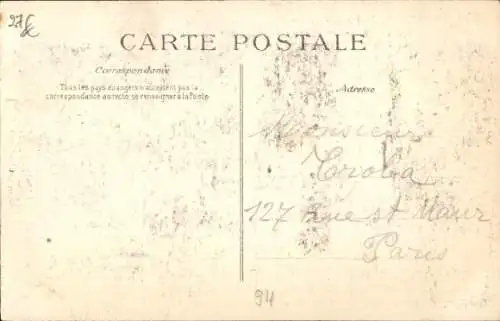 27€
CARTE POSTALE
Correspondance
Tous les pays étrangers n'acceptent pas la
correspondance au recto, se renseigner à la Poste
Adresse
Monsieur
127 Rue st Maur
Paris
94